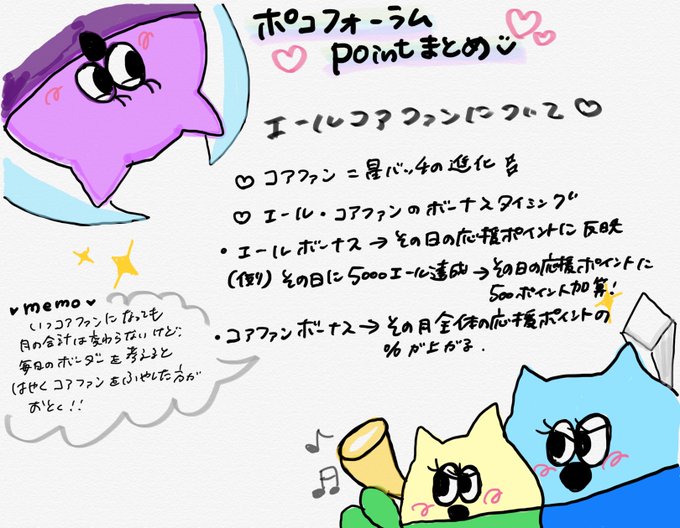 ポコフォーラム
pointまとめ
エールコアファンについて♡
♡ コアファン = 星バッチの進化
♡ エール・コアファンのボーナスタイミング
・エールボーナス → その日の応援ポイントに反映
(例) その日に5000エール達成 → その日の応援ポイントに
500ポイント加算!
・コアファンボーナス → その月全体の応援ポイントの
%が上がる.
♥memo♥
いつコアファンになっても
月の合計は変わらないけど、
毎日のボーダーを考えると
はやくコアファンをふやした方が
おとく!!